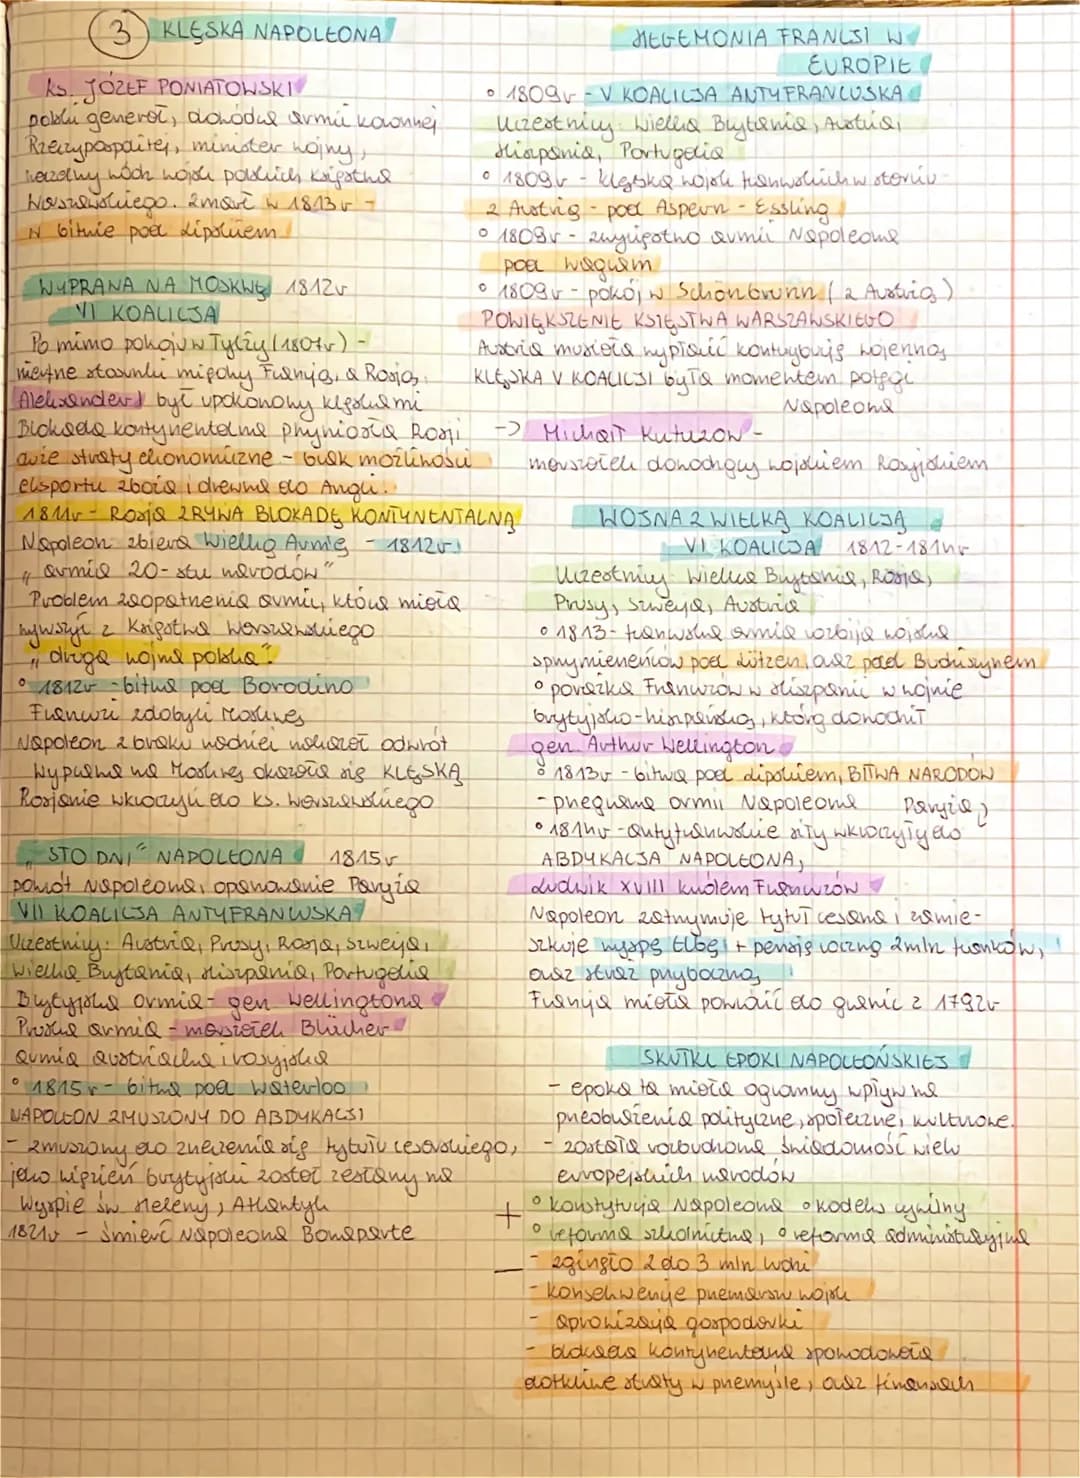 3 KLĘSKA NAPOLEONA
ks. JÓZEF PONIATOWSKI
polski generał, dowódca armii koronnej
Rzeczypospolitej, minister wojny,
naczelny wódz wojsk polskich Księstwa
Warszawskiego. Zmarł w 1813r -
w bitwie pod Lipskiem
WYPRAWA NA MOSKWĘ 1812r
VI KOALICJA
Po mimo pokoju w Tylży (1807r) -
napięte stosunki między Francją, a Rosją.
Aleksander I był upokorzony klęskami
Blokada kontynentalna przyniosła Rosji
duże straty ekonomiczne - brak możliwości
eksportu zboża i drewna do Angli.
1811r - Rosja ZRYWA BLOKADĘ KONTYNENTALNĄ
Napoleon zbiera Wielką Armię - 1812r.
„armia 20-stu narodów"
Problem zaopatrzenia armii, która miała
wyruszyć z Księstwa Warszawskiego
„druga wojna polska".
° 1812r - bitwa pod Borodino
Francuzi zdobyli Moskwę
Napoleon z braku nadziei nakazał odwrót
Wyprawa na Moskwę okazała się KLĘSKĄ
Rosjanie wkroczyli do ks. warszawskiego
„STO DNI" NAPOLEONA 1815r
powrót Napoleona, opanowanie Paryża
VII KOALICJA ANTYFRANCUSKA
Uczestnicy: Austria, Prusy, Rosja, Szwecja,
Wielka Brytania, Hiszpania, Portugalia
Brytyjska armia - gen Wellingtona
Pruska armia - marszałek Blücher
armia austriacka i rosyjska
° 1815r - bitwa pod Waterloo
NAPOLEON ZMUSZONY DO ABDYKACJI
- zmuszony do zrzeczenia się tytułu cesarskiego,
jako więzień brytyjski został zesłany na
Wyspie św. Heleny, Atlantyk
1821r - śmierć Napoleona Bonaparte
HEGEMONIA FRANCJI W
EUROPIE
° 1809r - V KOALICJA ANTYFRANCUSKA
Uczestnicy: Wielka Brytania, Austria,
Hiszpania, Portugalia
° 1809r - klęska wojsk francuskich w starciu
z Austrią - pod Aspern - Essling
° 1809r - zwycięstwo armii Napoleona
pod Wagram
° 1809r - pokój w Schönbrunn (z Austrią)
POWIĘKSZENIE KSIĘSTWA WARSZAWSKIEGO
Austria musiała wypłacić kontrybucję wojenną
KLĘSKA V KOALICJI była momentem potęgi
Napoleona
-> Michaił Kutuzow -
marszałek dowodzący wojskiem Rosyjskiem
WOJNA Z WIELKĄ KOALICJĄ
VI KOALICJA 1812-1814r
Uczestnicy: Wielka Brytania, Rosja,
Prusy, Szwecja, Austria
° 1813 - francuska armia rozbija wojska
sprzymierzeńców pod Lützen, oraz pod Budziszynem
° porażka Francuzów w Hiszpanii w wojnie
brytyjsko-hiszpańską, którą dowodził
gen. Arthur Wellington
° 1813r - bitwa pod Lipskiem, BITWA NARODÓW
- przegrana armii Napoleona Paryża,
° 1814r - antyfrancuskie siły wkroczyły do
ABDYKACJA NAPOLEONA,
Ludwik XVIII królem Francuzów
Napoleon zatrzymuje tytuł cesarza i zamie-
szkuje wyspę Elbę, + pensję roczną 2mln franków,
oraz straż przyboczną
Francja miała powrócić do granic z 1792r
SKUTKI EPOKI NAPOLEOŃSKIEJ
- epoka ta miała ogromny wpływ na
przeobrażenia polityczne, społeczne, kulturowe.
- została rozbudzona świadomość wielu
europejskich narodów
+ ° konstytucja Napoleona ° kodeks cywilny
° reforma szkolnictwa, ° reforma administracyjna
— - zginęło 2 do 3 mln ludzi
- konsekwencje przemarszu wojsk
- aprowizacja gospodarki
- blokada kontynentalna spowodowała
dotkliwe straty w przemyśle, oraz finansach